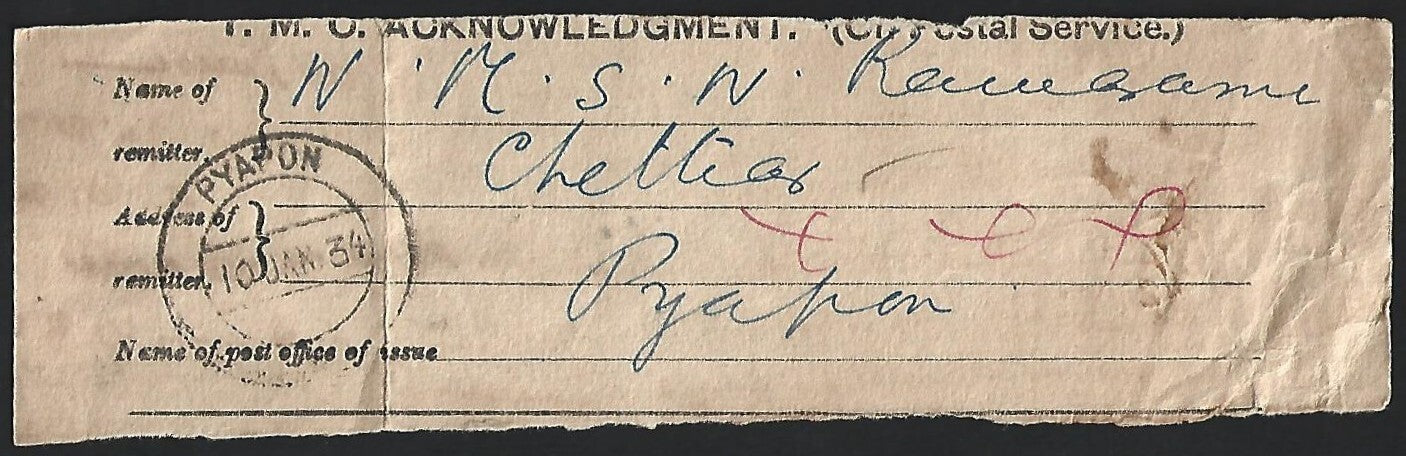 T. M. O. ACKNOWLEDGMENT. (On Postal Service.)
Name of remitter, N. M. S. N. Ramasami
Chettiar
Address of remitter,
Pyapon
Name of post office of issue
PYAPON
10 JAN. 34